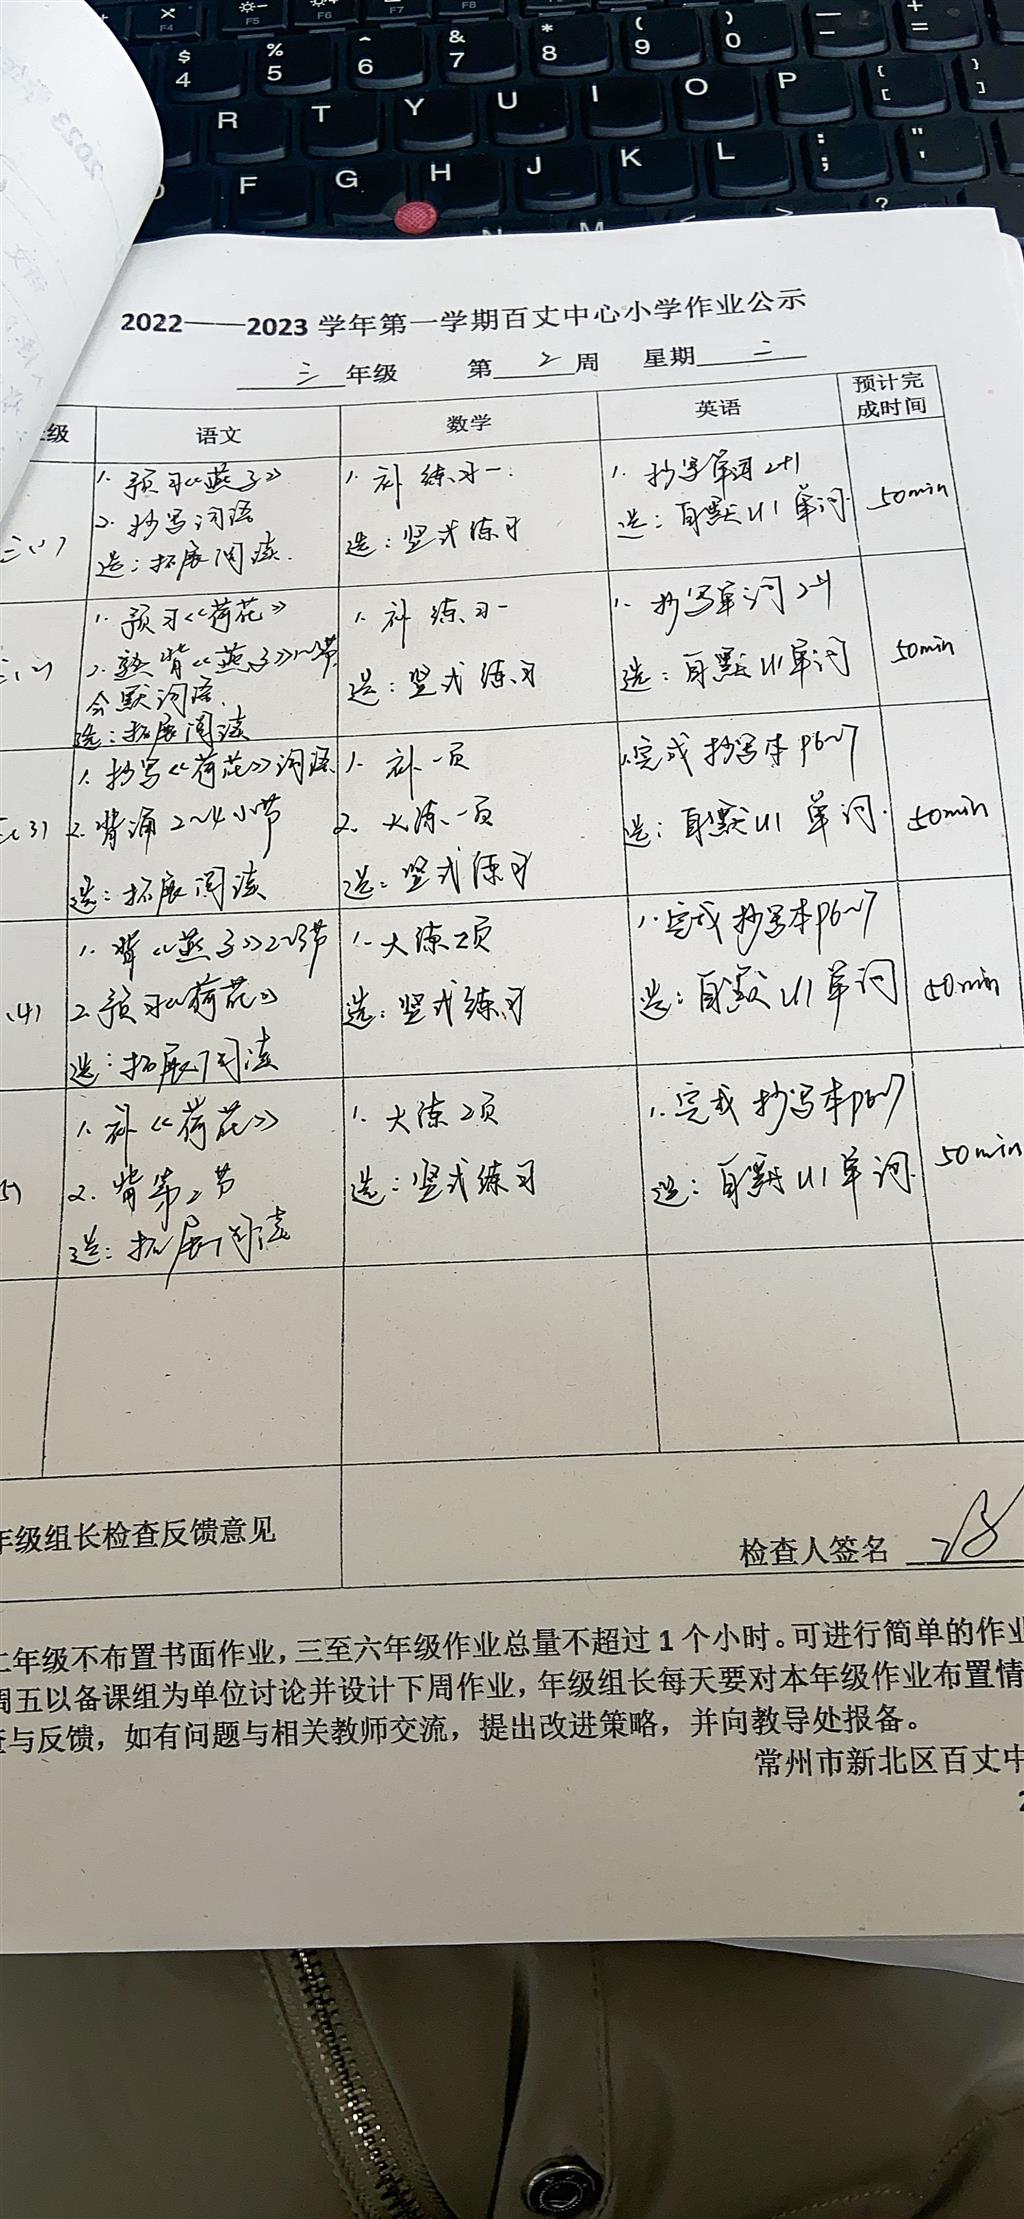 2022——2023 学年第一学期百丈中心小学作业公示
三 年级 第 2 周 星期 三
级 语文 数学 英语 预计完成时间
三(1)
1. 预习《燕子》
2. 抄写词语
选：拓展阅读.
1. 补练习一.
选：竖式练习
1. 抄写单词2+1
选：自默U1单词.
50min
三(2)
1. 预习《荷花》
2. 熟背《燕子》1~3节
会默词语.
选：拓展阅读
1. 补练习一
选：竖式练习
1. 抄写单词2+1
选：自默U1单词
50min
三(3)
1. 抄写《荷花》词语
2. 背诵2~4小节
选：拓展阅读
1. 补一页
2. 大练一页
选：竖式练习
1.完成抄写本P6~7
选：自默U1单词.
50min
(4)
1. 背《燕子》2~3节
2. 预习《荷花》
选：拓展阅读
1. 大练2页
选：竖式练习
1.完成抄写本P6~7
选：自默U1单词
50min
5)
1. 补《荷花》
2. 背第2节
选：拓展阅读
1. 大练2页
选：竖式练习
1.完成抄写本P6~7
选：自默U1单词.
50min
年级组长检查反馈意见
检查人签名
二年级不布置书面作业，三至六年级作业总量不超过1个小时。可进行简单的作业
周五以备课组为单位讨论并设计下周作业，年级组长每天要对本年级作业布置情
查与反馈，如有问题与相关教师交流，提出改进策略，并向教导处报备。
常州市新北区百丈中
2
$ 4 % 5 ^ 6 & 7 * 8 ( 9 ) 0 — - + =
F4 F5 F6 F7 F8
R T Y U I O P { [ } ]
F G H J K L : ; " '
N M < > ?
2023